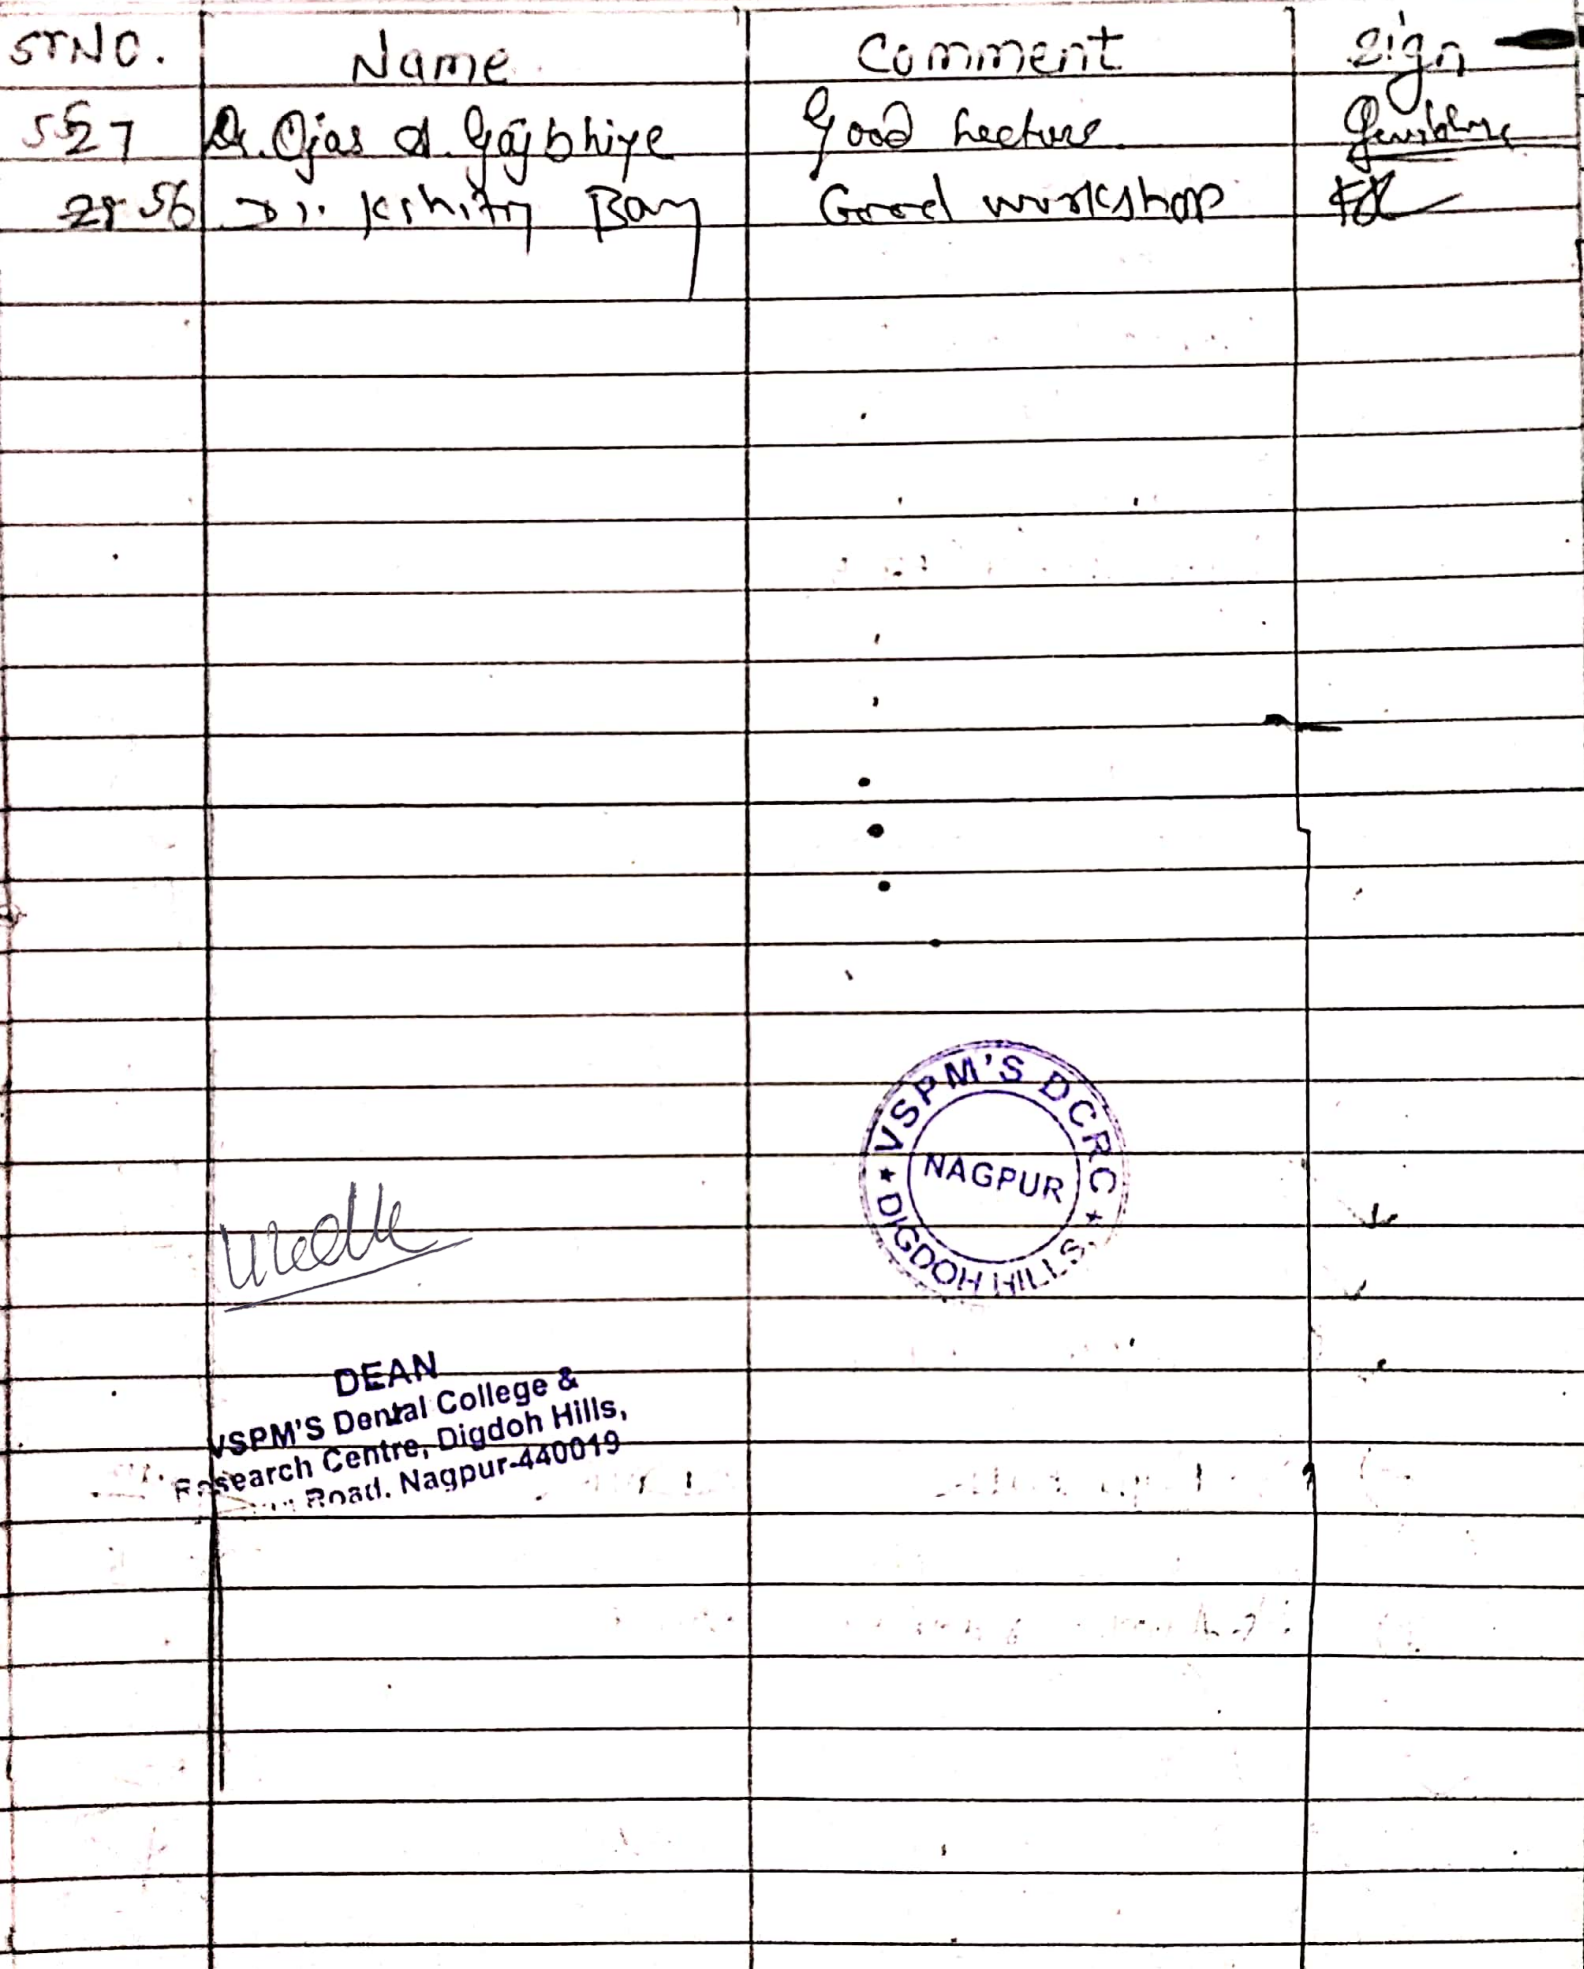 SrNO. Name Comment Sign
5527 Dr. Ojas A. Gajbhiye Good Lecture.
56 Dr. Good workshop
VSPM'S DCRC
NAGPUR
DIGDOH HILLS,
DEAN
VSPM'S Dental College &
Research Centre, Digdoh Hills,
Road, Nagpur-440019